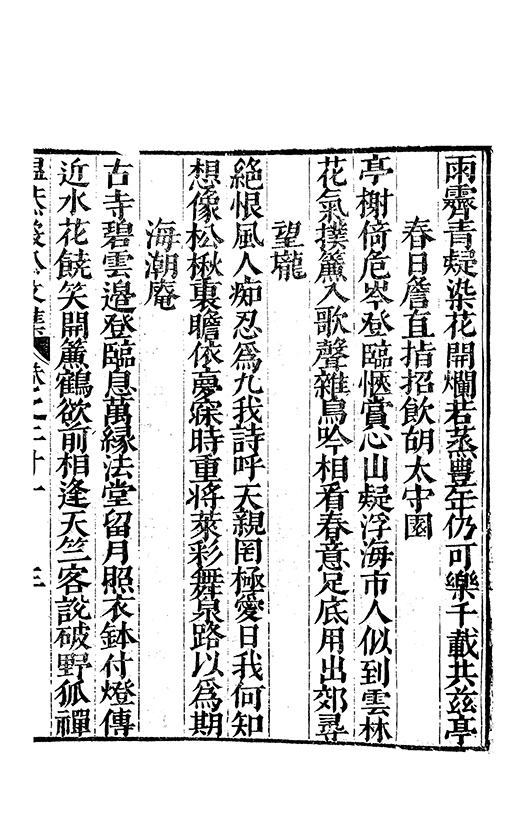 雨霽青疑染花開爛若蒸豐年仍可樂千載共茲亭
春日詹直指招飲胡太守園
亭榭倚危岑登臨愜賞心山疑浮海市人似到雲林
花氣撲簾入歌聲雜鳥吟相看春意足底用出郊尋
望壠
絕恨風人痴忍為九我詩呼天親罔極愛日我何知
想像松楸裏瞻依夢寐時重將萊彩舞泉路以為期
海潮庵
古寺碧雲邊登臨息萬緣法堂留月照衣鉢付燈傳
近水花饒笑開簾鶴欲前相逢天竺客說破野狐禪
溫恭毅公文集 卷之二十一 三